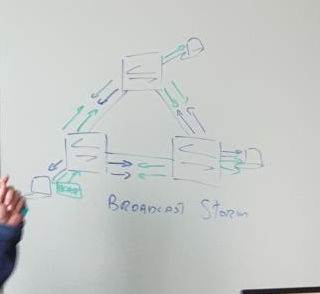 BROADCAST STORM